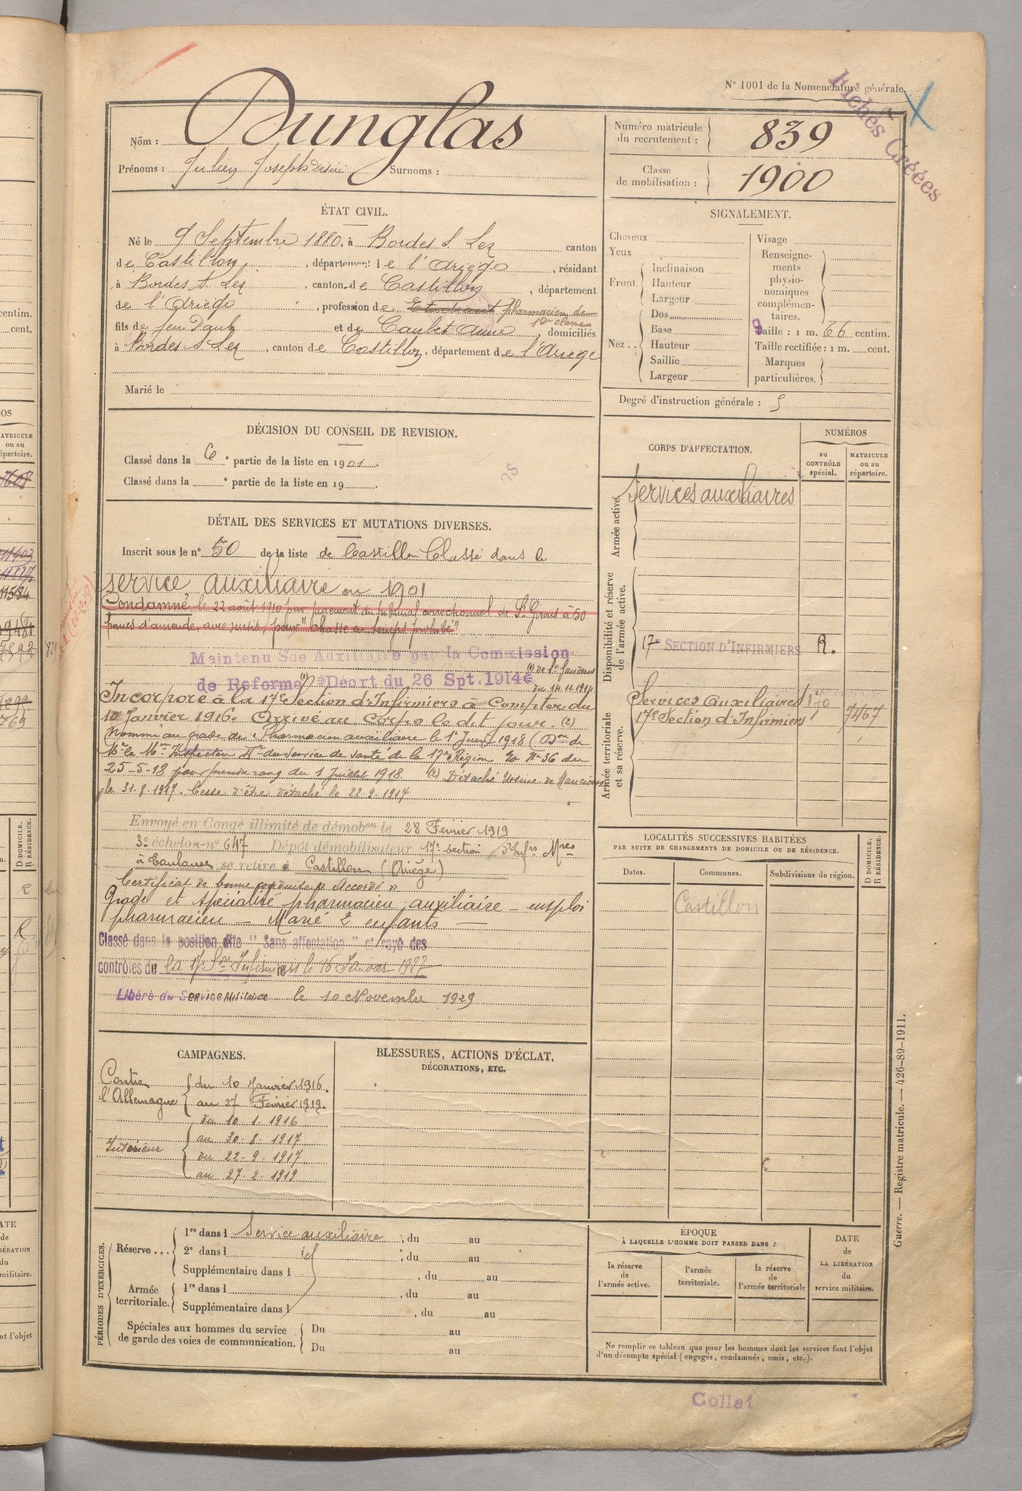 N° 1001 de la Nomenclature générale.
Fiches Créées
Nom : Dunglas
Prénoms : Julien Joseph Désiré Surnoms :
Numéro matricule du recrutement : 839
Classe de mobilisation : 1900
ÉTAT CIVIL.
Né le 9 Septembre 1880, à Bordes S. Lez canton
de Castillon, département de l'Ariège, résidant
à Bordes S. Lez, canton de Castillon, département
de l'Ariège, profession de Etudiant pharmacien de 1re classe
fils de feu et de Caubet Anne, domiciliés
à Bordes S. Lez, canton de Castillon, département de l'Ariège
Marié le
SIGNALEMENT.
Cheveux
Yeux
Front
Inclinaison
Hauteur
Largeur
Nez
Dos
Base
Hauteur
Saillie
Largeur
Visage
Renseignements physionomiques complémentaires.
Taille : 1 m. 66 centim.
Taille rectifiée : 1 m. cent.
Marques particulières.
Degré d'instruction générale : 5
DÉCISION DU CONSEIL DE REVISION.
Classé dans la 6e partie de la liste en 1901.
Classé dans la e partie de la liste en 19
DÉTAIL DES SERVICES ET MUTATIONS DIVERSES.
Inscrit sous le n° 50 de la liste de Castillon Classé dans le
service auxiliaire en 1901
Condamné le 22 août 1910 par jugement du tribunal correctionnel de St Girons à 50
francs d'amende, avec sursis, pour "Chasse en temps prohibé"
Maintenu Sce Auxiliaire par la Commission
de Réforme (1) Décret du 26 Spt. 1914
(1) de St Gaudens
du 14.11.1914
Incorporé à la 17e Section d'Infirmiers à compter du
10 Janvier 1916. Arrivé au Corps le dit jour. (2)
Nommé au grade de Pharmacien auxiliaire le 1er Juin 1918 (Don de
Mr le Mn Inspecteur Dr du service de santé de la 17e Région No 36 du
25-5-18 pour prendre rang du 1 Juillet 1918. (2) Détaché Usine de
le 31-8-1917. Cesse d'être détaché le 22-9-1917
Envoyé en Congé illimité de démobon le 28 Février 1919
3e échelon n° 647 Dépôt démobilisateur 17e section d'Infres Mres
à Toulouse se retire à Castillon (Ariège)
Certificat de bonne conduite Accordé
Grade et spécialité pharmacien auxiliaire – emploi
pharmacien – Marié 2 enfants
Classé dans la position dite "Sans affectation" et rayé des
contrôles de la 17e Son Infirmiers le 16 Janvier 1927
Libéré du Service Militaire le 10 Novembre 1929
CORPS D'AFFECTATION.
NUMÉROS
au CONTRÔLE spécial.
MATRICULE ou au répertoire.
Armée active.
Services auxiliaires
Disponibilité et réserve de l'armée active.
17e SECTION D'INFIRMIERS R.
Armée territoriale et sa réserve.
Services auxiliaires
17e Section d'Infirmiers 7467
LOCALITÉS SUCCESSIVES HABITÉES
PAR SUITE DE CHANGEMENTS DE DOMICILE OU DE RÉSIDENCE.
Dates.
Communes.
Subdivisions de région.
D DOMICILE. R RÉSIDENCE.
Castillon
CAMPAGNES.
Contre l'Allemagne
du 10 Janvier 1916.
au 27 Février 1919.
Intérieur
du 10.1.1916
au 30.8.1917
du 22-9-1917
au 27-2-1919
BLESSURES, ACTIONS D'ÉCLAT,
DÉCORATIONS, ETC.
PÉRIODES D'EXERCICES.
Réserve
1re dans l Service auxiliaire, du au
2e dans l id ; du au
Supplémentaire dans l , du au
Armée territoriale.
1re dans l , du au
Supplémentaire dans l , du au
Spéciales aux hommes du service de garde des voies de communication.
Du au
Du au
ÉPOQUE
À LAQUELLE L'HOMME DOIT PASSER DANS :
la réserve de l'armée active.
l'armée territoriale.
la réserve de l'armée territoriale
DATE de LA LIBÉRATION du service militaire.
Ne remplir ce tableau que pour les hommes dont les services font l'objet
d'un décompte spécial (engagés, condamnés, omis, etc.).
Guerre. — Registre matricule. — 426-89-1911.
Collat